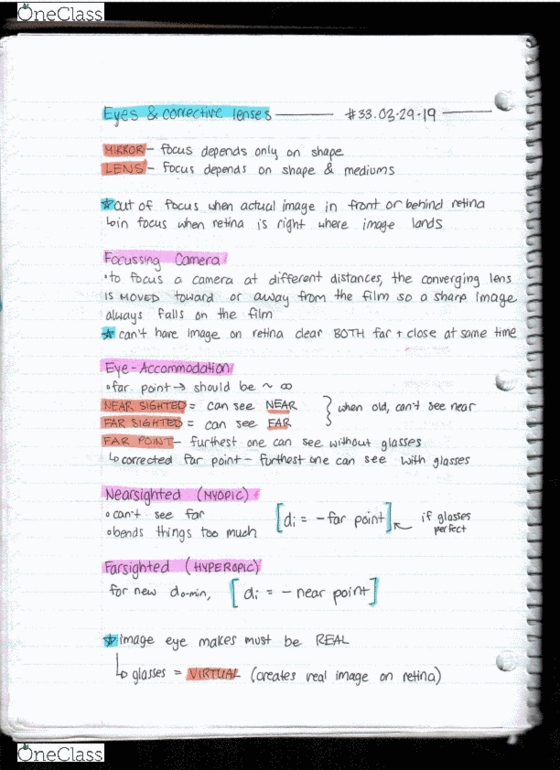 OneClass
Eyes & corrective lenses #33.03-29-19
MIRROR - focus depends only on shape
LENS - focus depends on shape & mediums
out of focus when actual image in front or behind retina
in focus when retina is right where image lands
Focussing Camera
to focus a camera at different distances, the converging lens
is MOVED toward or away from the film so a sharp image
always falls on the film
can't have image on retina clear BOTH far + close at same time
Eye-Accommodation
far point → should be ~ ∞
NEAR SIGHTED = can see NEAR } when old, can't see near
FAR SIGHTED = can see FAR
FAR POINT - furthest one can see without glasses
corrected far point - furthest one can see with glasses
Nearsighted (MYOPIC)
can't see far
bends things too much [di = -far point] if glasses
perfect
Farsighted (HYPEROPIC)
for new do-min, [di = - near point]
image eye makes must be REAL
glasses = VIRTUAL (creates real image on retina)
OneClass